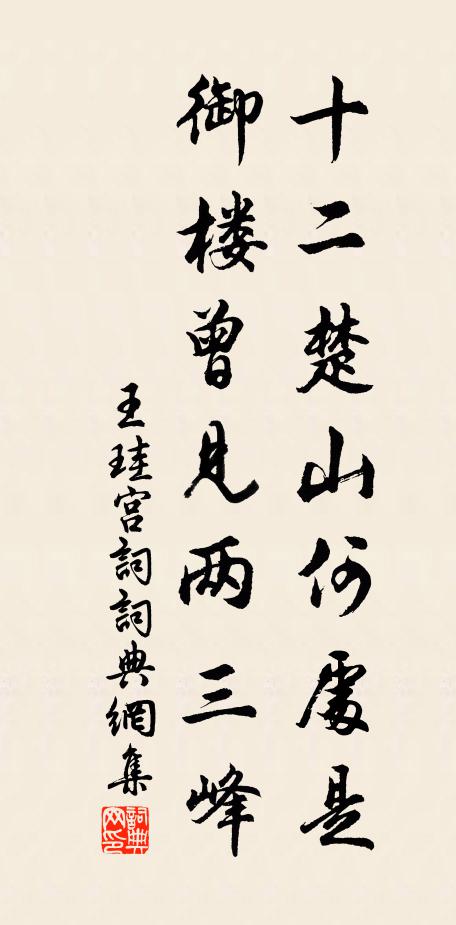 十二楚山何處是
御楼曾見两三峰
王珪宫詞詞典網集
詞典网印